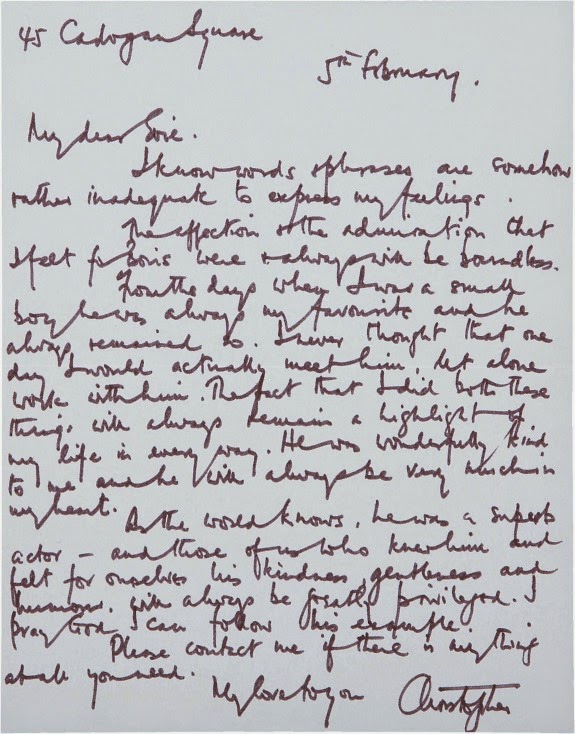 45 Cadogan Square
5th February.
My dear Evie.
I know words & phrases are somehow
rather inadequate to express my feelings.
The affection & the admiration that
I felt for Boris were & always will be boundless.
From the days when I was a small
boy he was always my favourite and he
always remained so. I never thought that one
day I would actually meet him, let alone
work with him. The fact that I did both these
things will always remain a highlight of
my life in every way. He was wonderfully kind
to me and he will always be very much in
my heart.
As the world knows, he was a superb
actor – and those of us who knew him and
felt for ourselves his kindness, gentleness and
humour, will always be greatly privileged. I
pray God I can follow his example.
Please contact me if there is anything
at all you need.
My love to you Christopher